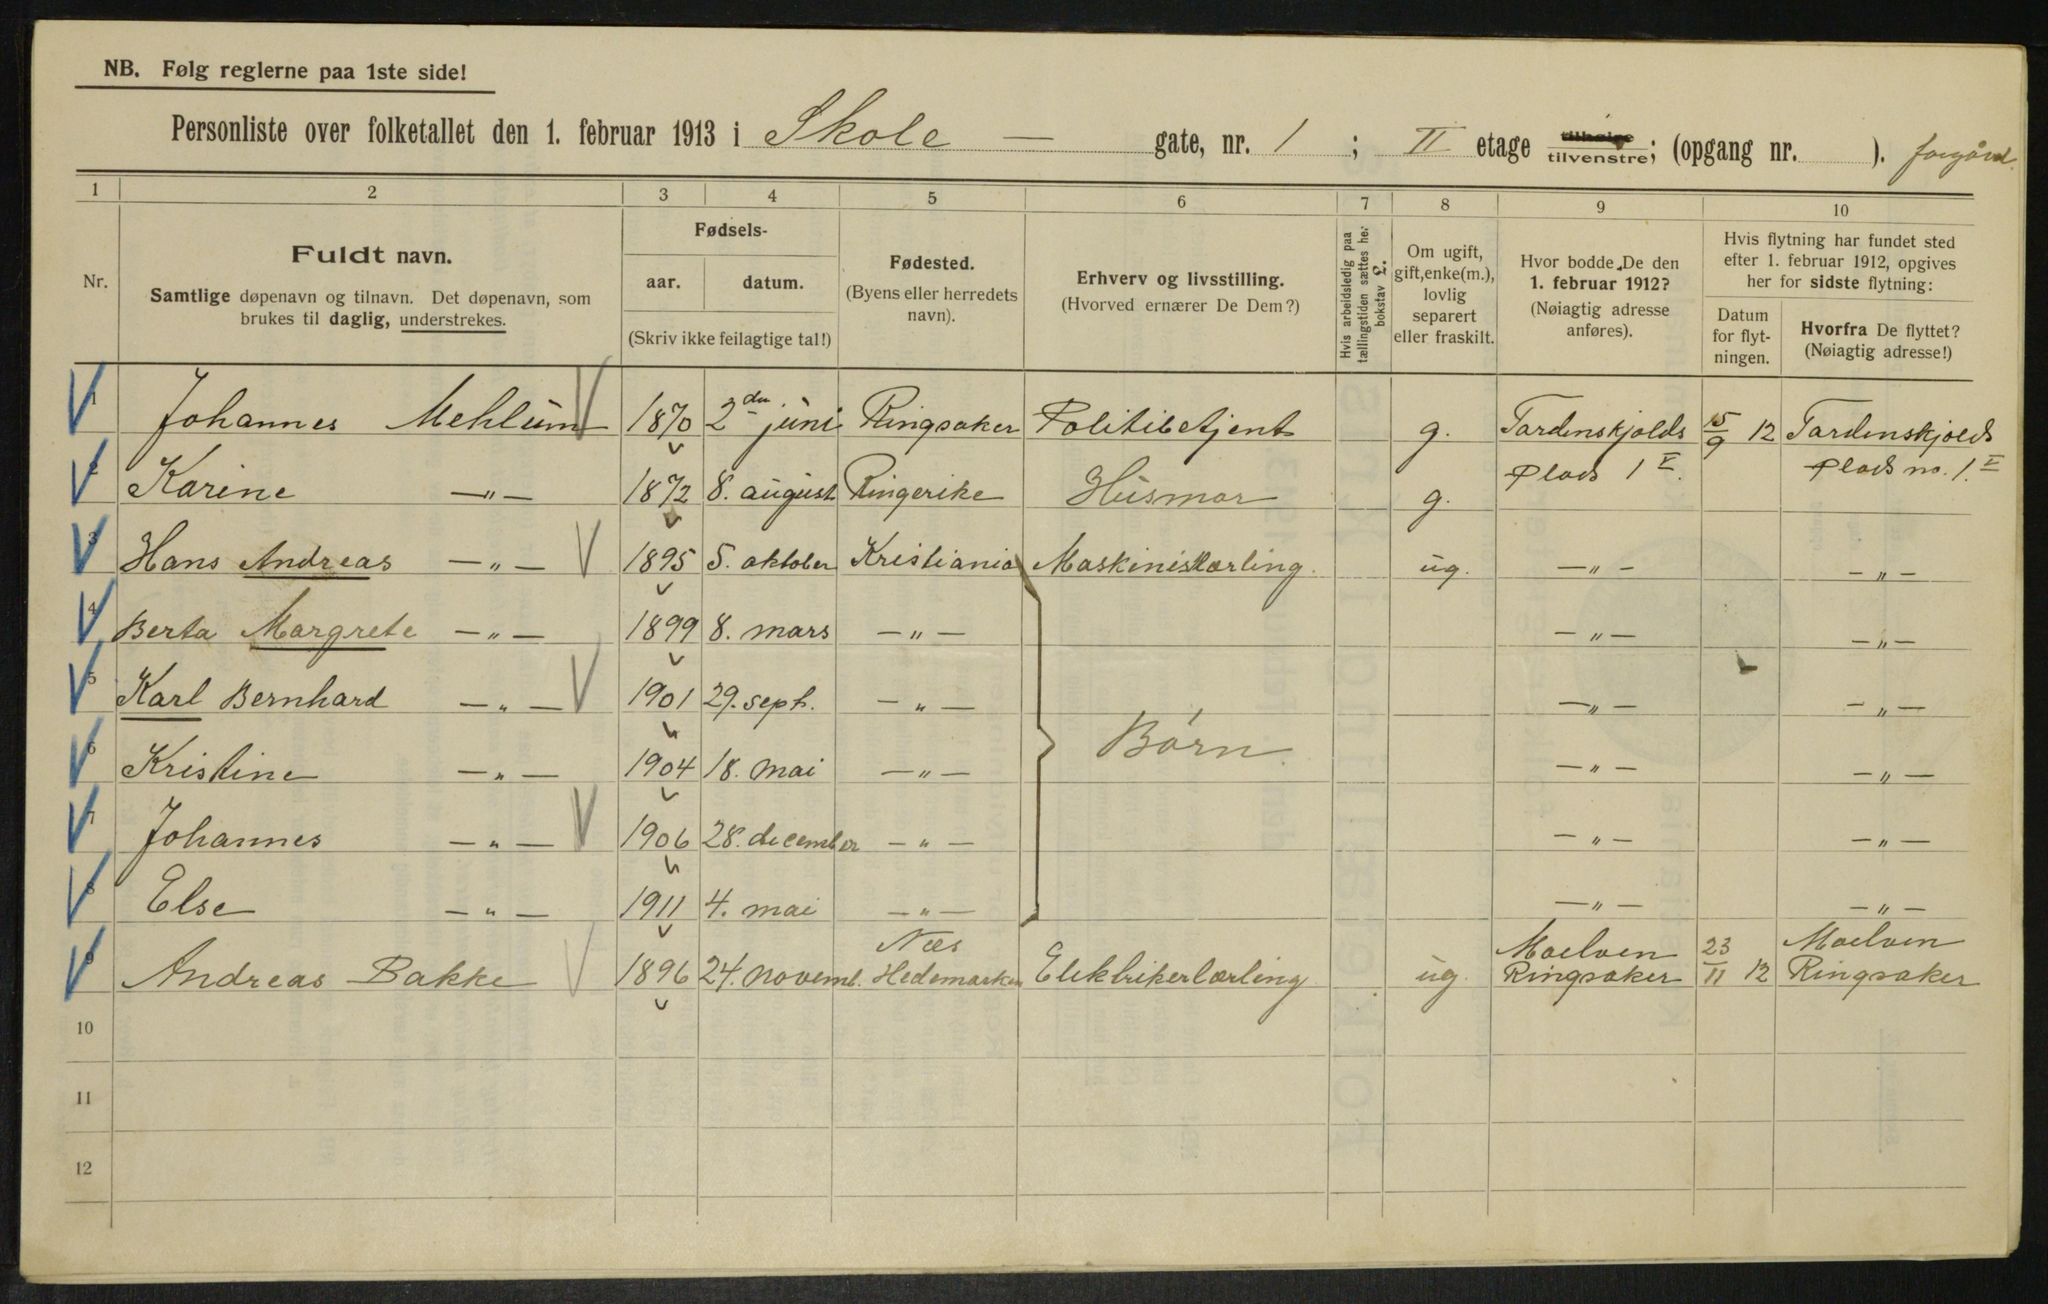 NB. Følg reglerne paa 1ste side!
Personliste over folketallet den 1. februar 1913 i Skole — gate, nr. 1 ; II etage tilhøire tilvenstre; (opgang nr. ). forgård.
1 2 3 4 5 6 7 8 9 10
Nr.
Fuldt navn.
Samtlige døpenavn og tilnavn. Det døpenavn, som
brukes til daglig, understrekes.
Fødsels-
aar. datum.
(Skriv ikke feilagtige tal!)
Fødested.
(Byens eller herredets
navn).
Erhverv og livsstilling.
(Hvorved ernærer De Dem?)
Hvis arbeidsledig paa
tællingstiden sættes her
bokstav L.
Om ugift,
gift, enke(m.),
lovlig
separert
eller fraskilt.
Hvor bodde De den
1. februar 1912?
(Nøiagtig adresse
anføres).
Hvis flytning har fundet sted
efter 1. februar 1912, opgives
her for sidste flytning:
Datum
for flyt-
ningen.
Hvorfra De flyttet?
(Nøiagtig adresse!)
1 Johannes Mehlum 1870 2den juni Ringsaker Politibetjent g. Tordenskjolds 15/9 12 Tordenskjolds
Plads 1 V. Plads no. 1. V
2 Karine —"— 1872 8. august Ringerike Husmor g.
3 Hans Andreas —"— 1895 5. oktober Kristiania Maskinistlærling. ug. —"— —"—
4 Berta Margrete —"— 1899 8. mars —"— —"— —"—
5 Karl Bernhard —"— 1901 29. sept. —"— —"— —"—
Børn.
6 Kristine —"— 1904 18. mai —"— —"— —"—
7 Johannes —"— 1906 28. december —"— —"— —"—
8 Else —"— 1911 4. mai —"— —"— —"—
Næs Moelven 23 Moelven
9 Andreas Bakke 1896 24. novemb. Hedemarken Elektrikerlærling ug. Ringsaker 11 12 Ringsaker
10
11
12